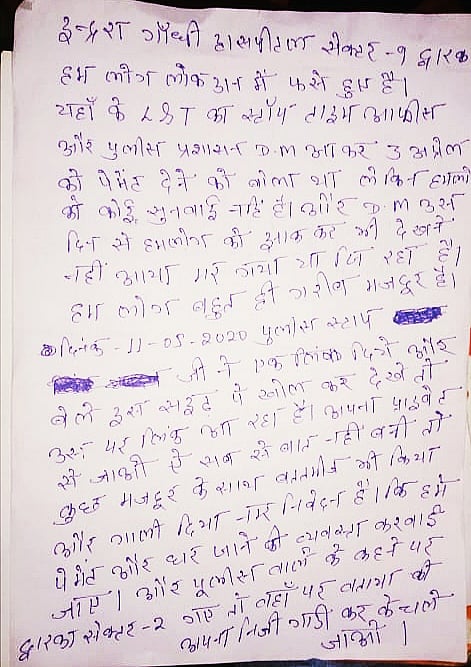 इन्द्रा गाँधी हासपीटल सेक्टर-9 द्वारका
हम लोग लोकडान में फसे हुए है।
यहाँ के L&T का स्टॉप टाइम आफीस
और पुलीस प्रशासन D.M आकर 3 अप्रैल
को पेमेंट देने को बोला था लेकिन हमलो
की कोई सुनवाई नहिं है। और D.M उस
दिन से हमलोग को झाक कर भी देखने
नहीं आया मर गया या जि रहा है।
हम लोग बहुत ही गरीब मजदूर है।
दिनांक-11-05-2020 पुलीस स्टाप
जी ने एक लिंक दिये और
बोले इस साईट पे खोल कर देखे तो
उस पर लिंक आ रहा है। अपना प्राइवेट
से जाओ ऐ सब से बात नहीं बनी तो
कुछ मजदूर के साथ बततमीज भी किया
और गाली दिया नम्र निवेदन है। कि हमे
पेमेंट और घर जाने की व्यवस्था करवाई
जाए। और पूलीस वालो के कहने पर
द्वारका सेक्टर-2 गए तो वहाँ पर बताया की
अपना निजी गाडी कर के चले
जाओ।